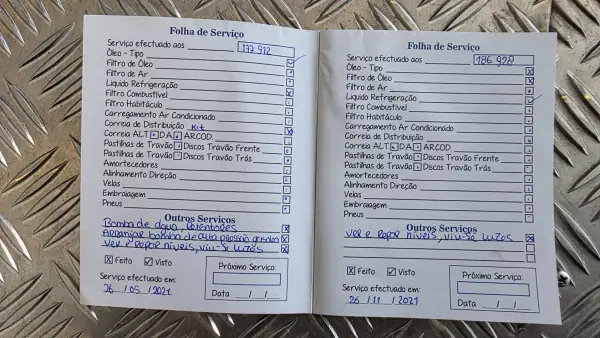 Folha de Serviço
Serviço efectuado aos 177 912
Óleo - Tipo
Filtro de Óleo
Filtro de Ar
Liquido Refrigeração
Filtro Combustível
Filtro Habitáculo
Carregamento Ar Condicionado
Correia de Distribuição Kit
Correia ALT DA ARCOD
Pastilhas de Travão Discos Travão Frente
Pastilhas de Travão Discos Travão Trás
Amortecedores
Alinhamento Direção
Velas
Embraiagem
Pneus
Outros Serviços
Bomba de água,
Arranjar bomba de alta pressão gasoleo
Ver e Repor niveis, viu-se luzes
Feito Visto
Próximo Serviço:
Serviço efectuado em:
26 / 05 / 2021
Data __/__/__
Folha de Serviço
Serviço efectuado aos 186 928
Óleo - Tipo
Filtro de Óleo
Filtro de Ar
Liquido Refrigeração
Filtro Combustível
Filtro Habitáculo
Carregamento Ar Condicionado
Correia de Distribuição
Correia ALT DA ARCOD
Pastilhas de Travão Discos Travão Frente
Pastilhas de Travão Discos Travão Trás
Amortecedores
Alinhamento Direção
Velas
Embraiagem
Pneus
Outros Serviços
Ver e Repor niveis, viu-se luzes
Feito Visto
Próximo Serviço:
Serviço efectuado em:
26 / 11 / 2021
Data __/__/__